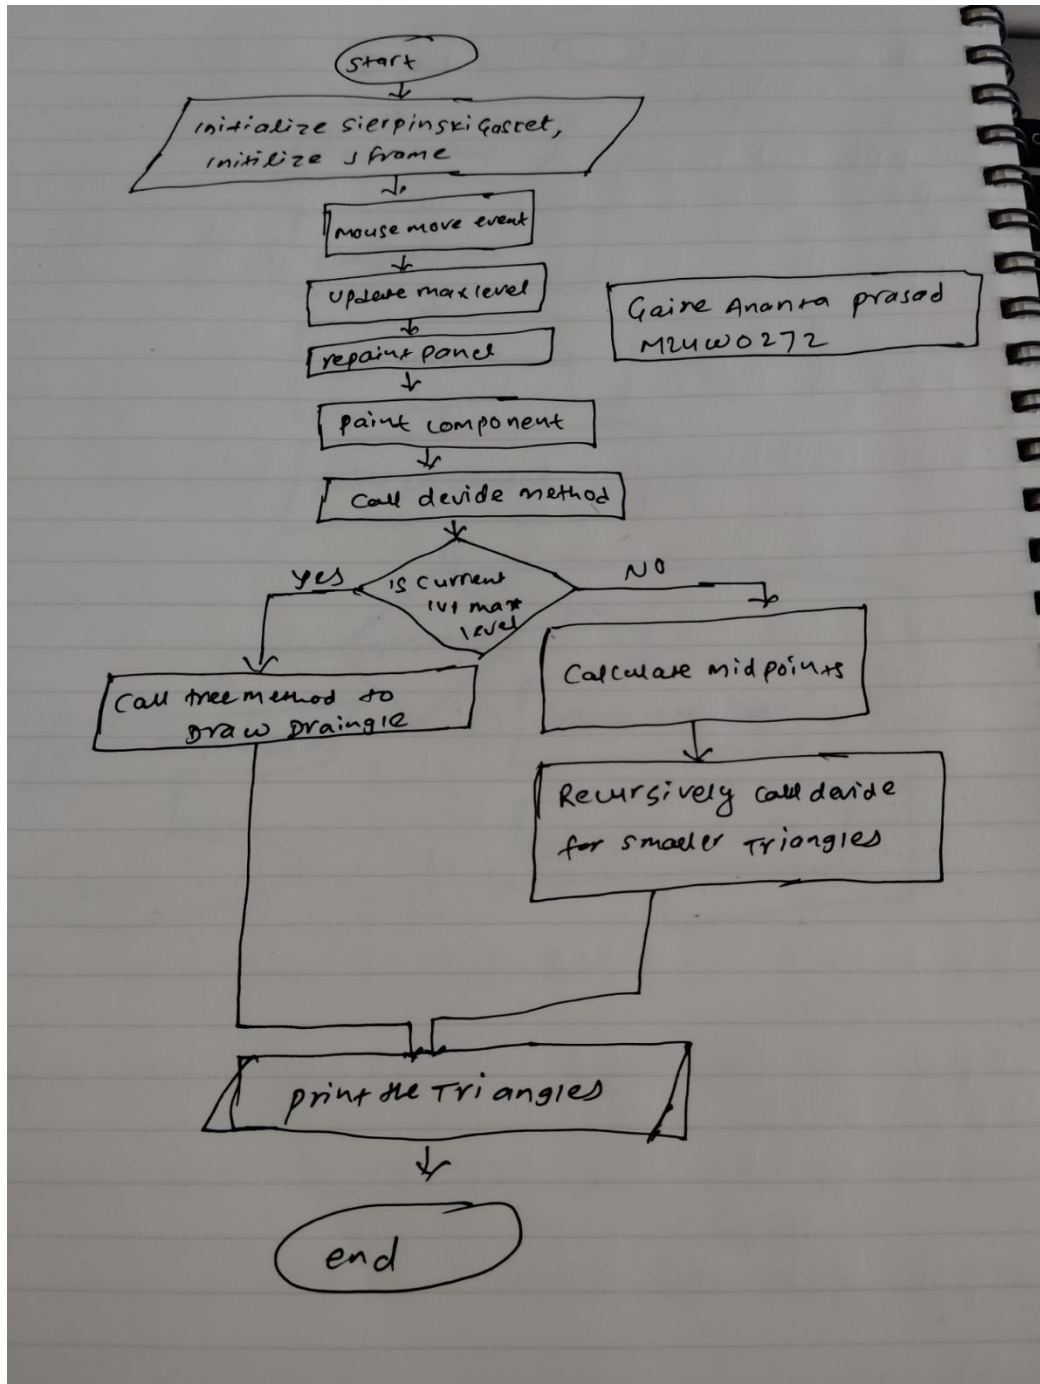 start
initialize sierpinski Gasket,
initilize J frame
mouse move event
update max level
Gaire Ananta prasad
M24W0272
repaint panel
paint component
Call devide method
yes
NO
is current
lvl max
level
Calculate midpoints
Call tree method to
Draw Draingle
Recursively call devide
for smaller Triangles
print the Triangles
end